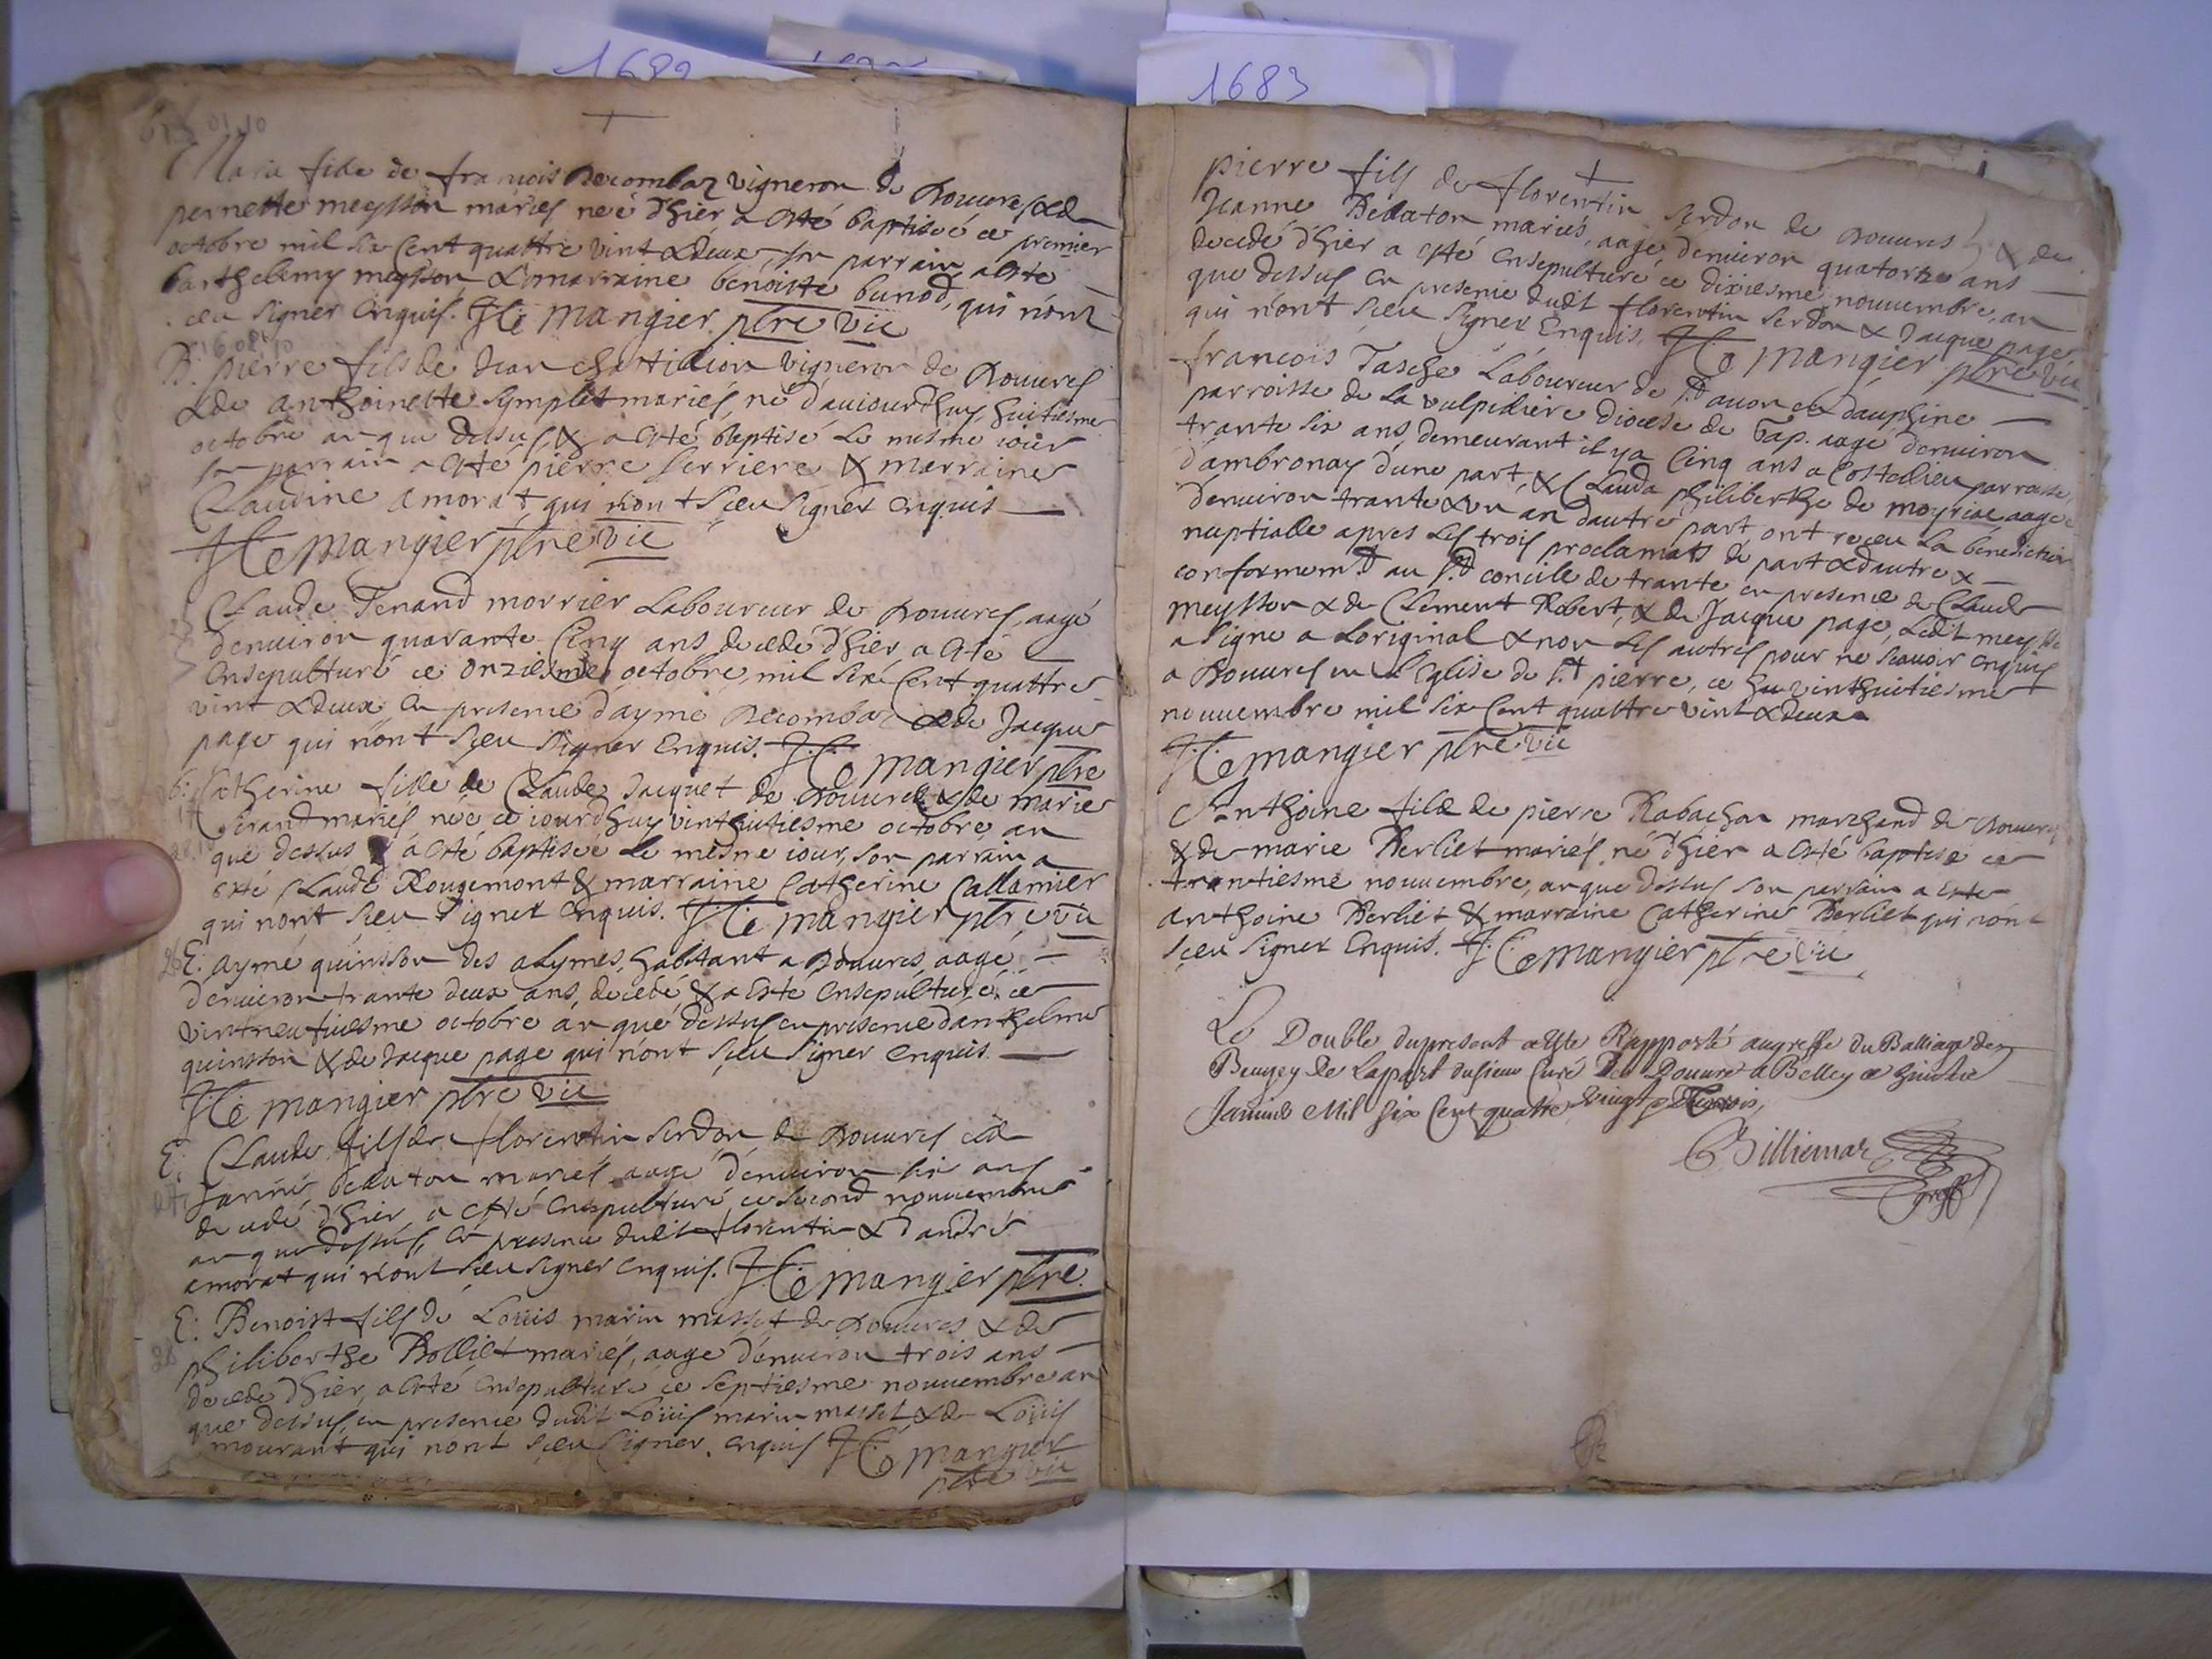 1682
1683
Marie fille de francois Decombaz vigneron de Douures & de
pernette meysson mariés neé d'hier a esté baptiseé ce premier
octobre mil six Cent quattre vint & deux son parrain a este
barthelemy meysson & marraine benoiste bunod, qui n'ont
sceu signer enquis. J C mangier ptre vic
B. pierre fils de Jean chastillion vigneron de Douures
& de anthoinette symplet mariés, né d'auiourdhuy huitiesme
octobre an que dessus & a esté baptisé le mesme iour
son parrain a esté pierre serriere & marraine
Claudine amorat qui n'ont sceu signer enquis
J C mangier ptre vic
Claude Tenand morrier laboureur de Douures, aagé
denuiron quarante Cinq ans, decedé d'hier a esté
ensepulturé ce onziesme octobre, mil six Cent quattre
vint & deux en presence d'aymé Decombaz & de Jacque
page qui n'ont sceu signer enquis. J C mangier ptre
b: Catherine fille de Claude Jacquet de Douures & de marie
mariés neé ce iourdhuy vinthuitiesme octobre an
que dessus a esté baptiseé le mesme iour, son parrain a
esté Claude Rougemont & marraine Catherine Callamier
qui n'ont sceu signer enquis. J C mangier ptre vic
E: aymé quinsson des alymes, habitant a Douures, aagé
denuiron trante deux ans, decedé & a esté ensepulturé ce
vintneufuiesme octobre an que dessus en presence d'anthelme
quinsson & de Jacque page qui n'ont sceu signer enquis
J C mangier ptre vic
E: Claude fils de florentin serdon de Douures & de
Janne bellaton mariés aagé denuiron six ans
decedé d'hier a esté ensepulturé ce second nouuembre
an que dessus, en presence dudit florentin & d'andré
amorat qui n'ont sceu signer enquis. J C mangier ptre
E: Benoist fils de Louis marin masset de Douures & de
philiberthe Bolliet mariés, aagé denuiron trois ans
decedé d'hier, a esté ensepulturé ce septiesme nouuembre an
que dessus, en presence dudit Louis marin masset & de Louis
mourant qui n'ont sceu signer enquis J C mangier
ptre vic
pierre fils de florentin serdon de Douures & de
Jeanne Bellaton mariés, aagé denuiron quatorze ans
decedé d'hier a esté ensepulturé ce dixiesme nouuembre, an
que dessus en presence dudit florentin serdon & Jacque page
qui n'ont sceu signer Enquis. J C mangier ptre vic
francois Tasche laboureur de en dauphine
parroisse de la vulpilliere diocese de Gap. aagé denuiron
trante six ans, demeurant il y a Cinq ans a Costedieu parroisse
d'ambronay d'une part, & Clauda philiberthe de moyriae aagée
denuiron trante & un an d'autre part, ont receu la benediction
nuptialle apres les trois proclamats de part & d'autre &
conformemt au st concile de trante en presence de Claude
meysson & de Clement Robert, & de Jacque page, ledit meysson
a signe a l'original & non les autres pour ne scauoir enquis
a Douures en l'Eglise de st pierre, ce vinthuitiesme
nouuembre mil six Cent quattre vint & deux
J C mangier ptre vic
Anthoine fils de pierre Rabachon marchand de Douures
& de marie Berliet mariés né d'hier a esté baptisé ce
trantiesme nouuembre, an que dessus son parrain a esté
anthoine Berliet & marraine Catherine Berliet qui n'ont
sceu signer Enquis. J C mangier ptre vic
Le Double du present a este Rapporté au greffe du Balliage de
Beugey de la part du sieur Curé de Douure a Belley ce huictie
Janvié Mil six Cent quatre vingt Trois,
Billiemaz
greff